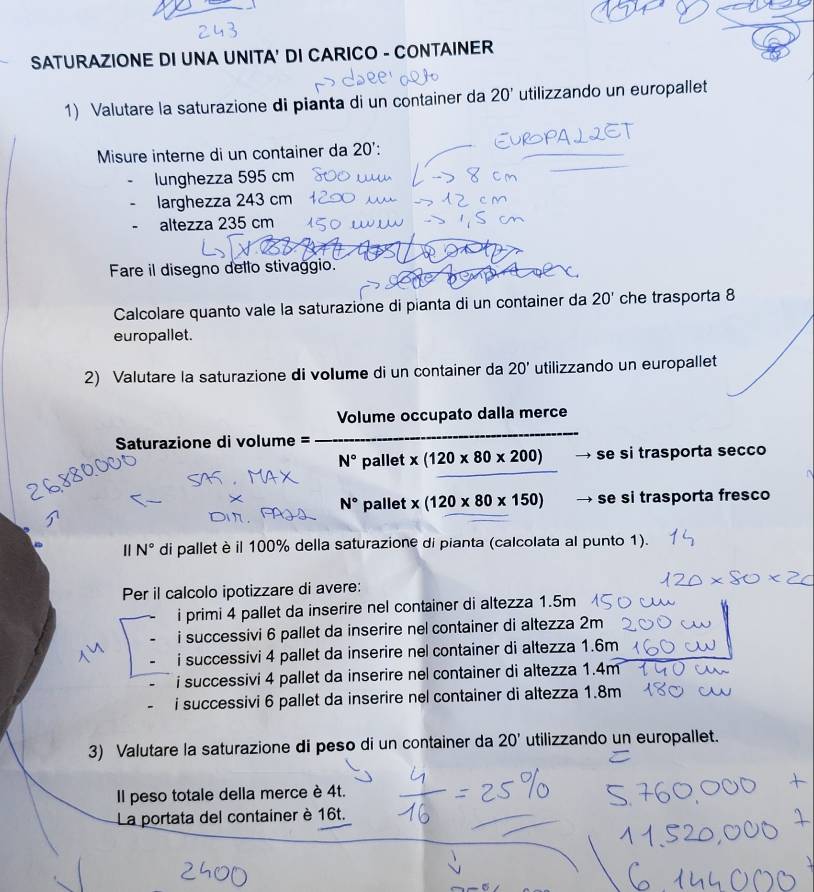 243
SATURAZIONE DI UNA UNITA' DI CARICO - CONTAINER
→ dall'alto
1) Valutare la saturazione di pianta di un container da 20' utilizzando un europallet
EUROPALLET
Misure interne di un container da 20':
- lunghezza 595 cm 800 mm → 8 cm
- larghezza 243 cm 1200 mm → 12 cm
- altezza 235 cm 150 mm → 1,5 cm
Fare il disegno detto stivaggio.
Calcolare quanto vale la saturazione di pianta di un container da 20' che trasporta 8
europallet.
2) Valutare la saturazione di volume di un container da 20' utilizzando un europallet
Volume occupato dalla merce
Saturazione di volume =
N° pallet x (120 x 80 x 200) → se si trasporta secco
26.880.000
SAS. MAX
x
DIM. PALL
N° pallet x (120 x 80 x 150) → se si trasporta fresco
Il N° di pallet è il 100% della saturazione di pianta (calcolata al punto 1). 14
120 x 80 x 20
Per il calcolo ipotizzare di avere:
- i primi 4 pallet da inserire nel container di altezza 1.5m 150 cm
- i successivi 6 pallet da inserire nel container di altezza 2m 200 cm
14
- i successivi 4 pallet da inserire nel container di altezza 1.6m 160 cm
- i successivi 4 pallet da inserire nel container di altezza 1.4m 140 cm
- i successivi 6 pallet da inserire nel container di altezza 1.8m 180 cm
3) Valutare la saturazione di peso di un container da 20' utilizzando un europallet.
=
Il peso totale della merce è 4t.
4/16 = 25%
5.760.000 +
La portata del container è 16t.
11.520.000 +
2400
6.144000